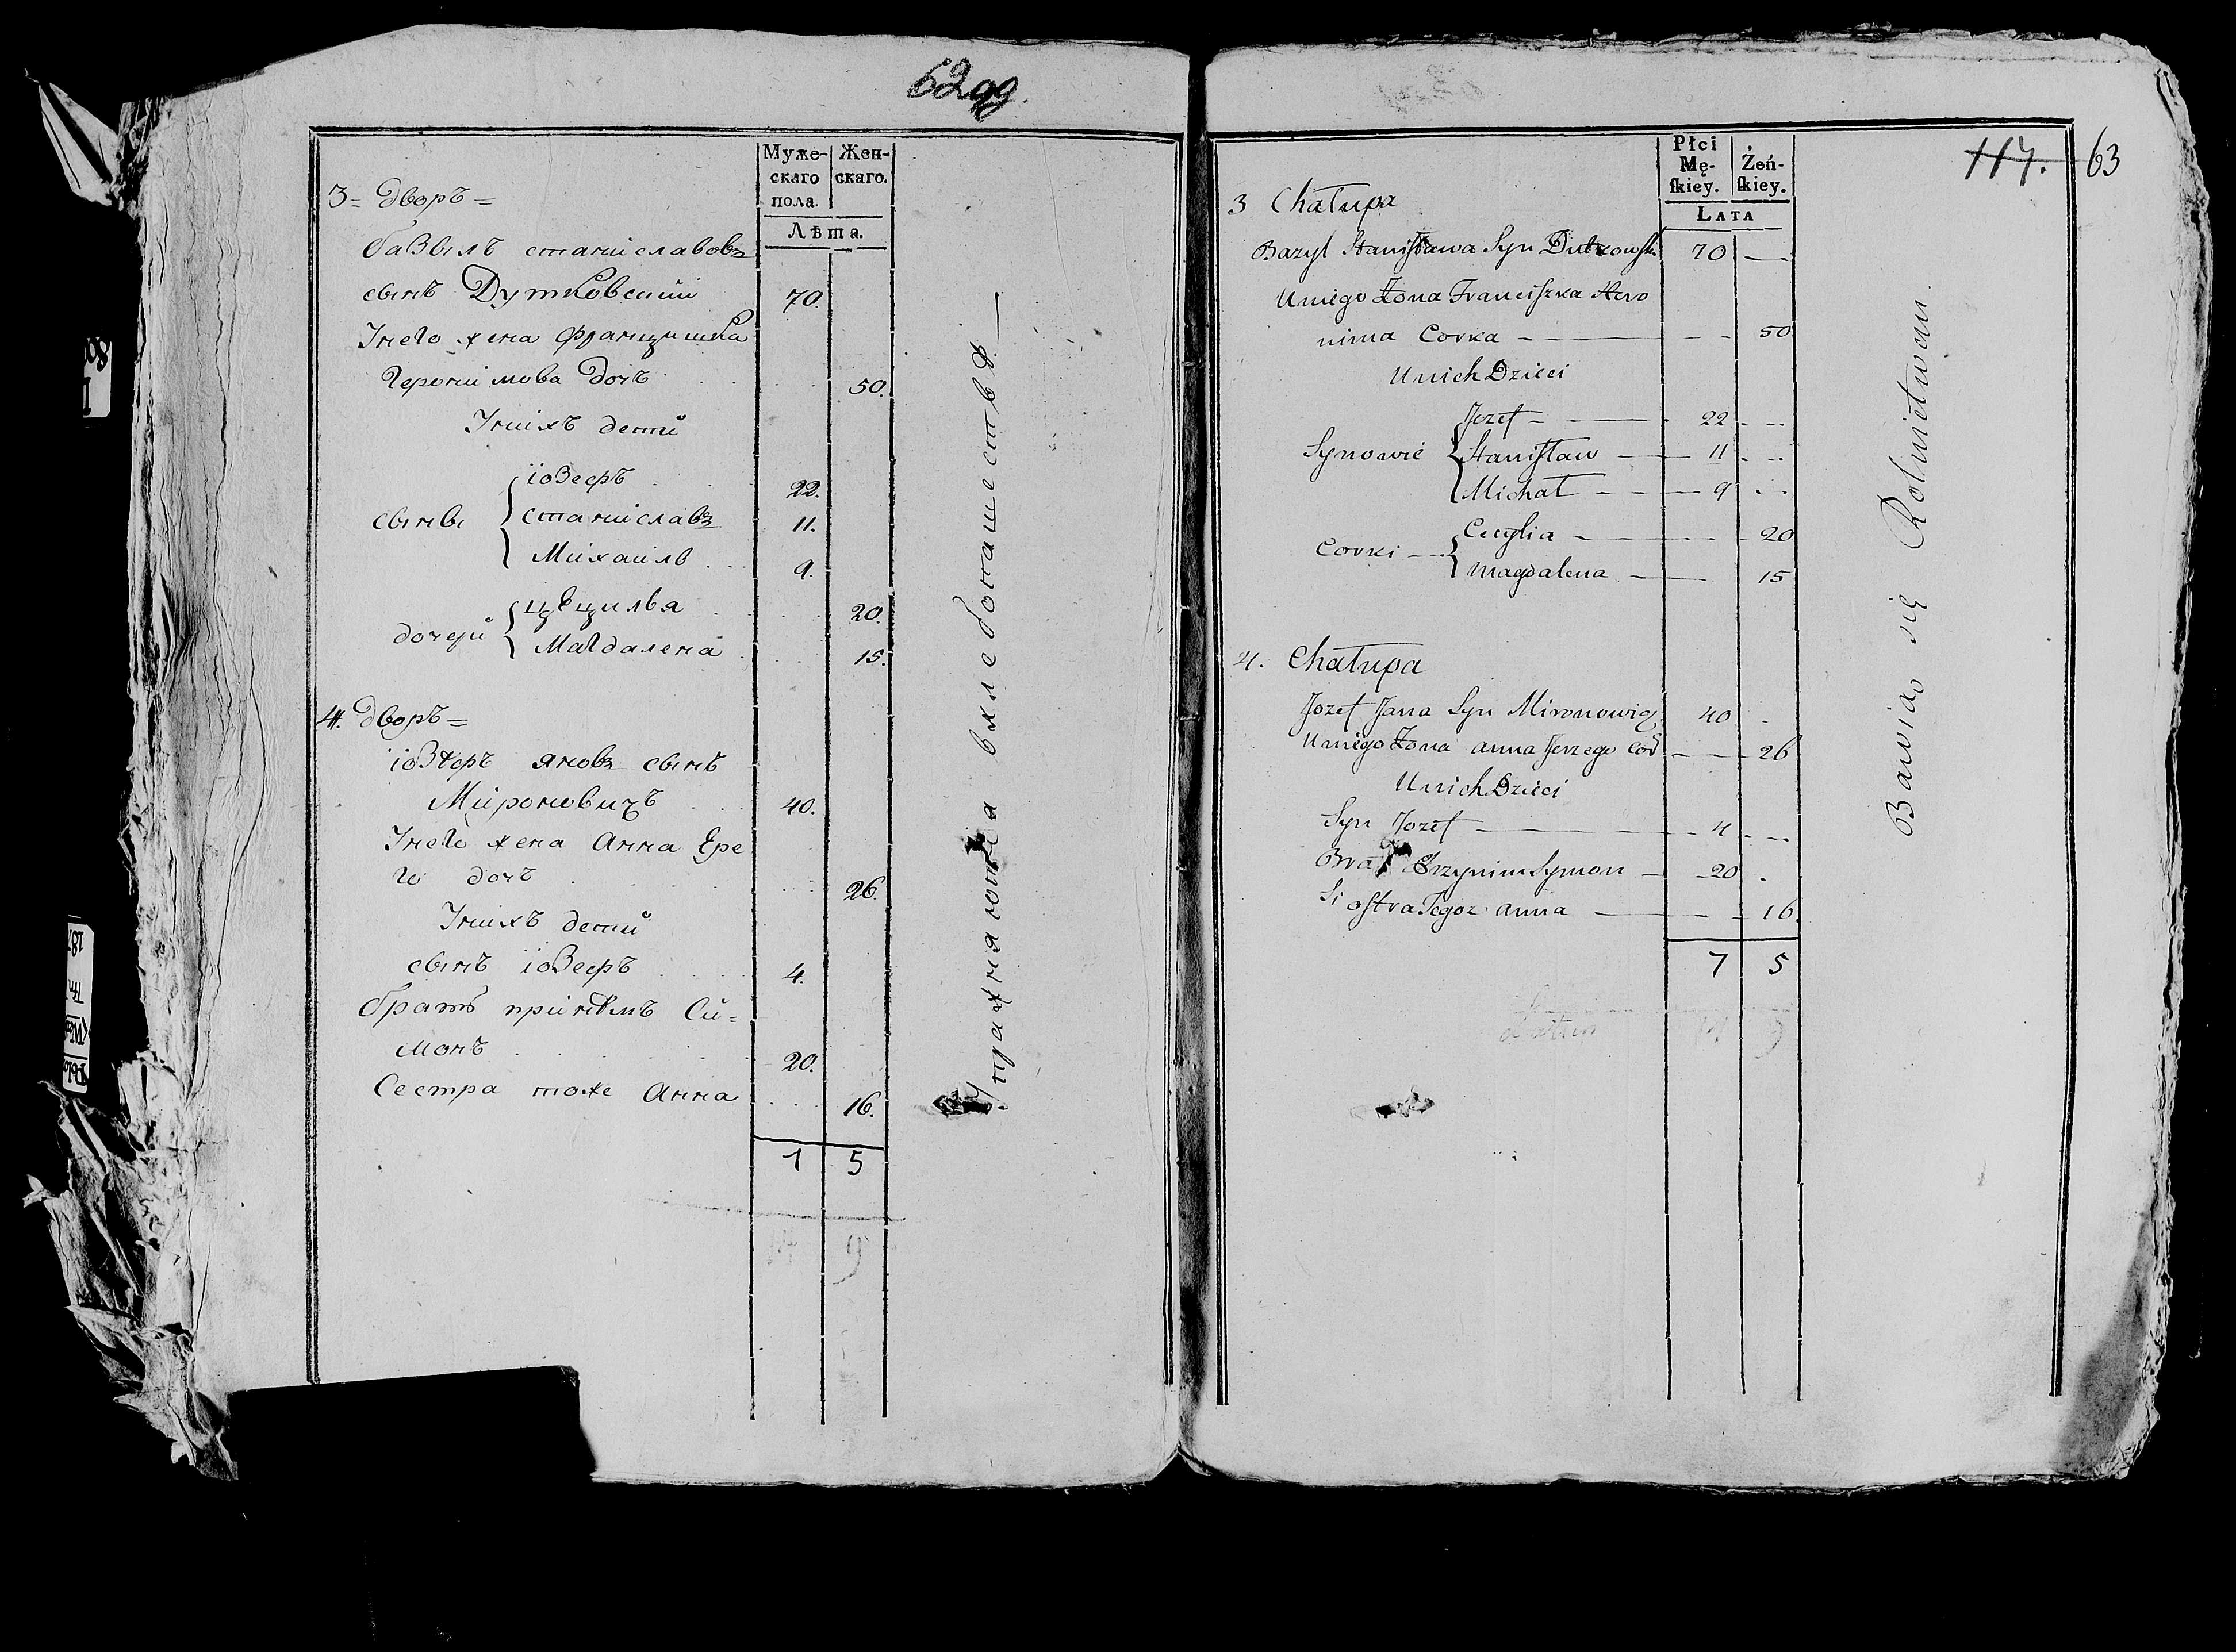 62 99.
Муже-
скаго
пола.
Жен-
скаго.
Лѣта.
3= дворъ=
базылъ станиславовъ
сынъ Дутковский
70.
Унего жена францишка
героnимова дочъ
50.
Унихъ дети
сынвı
іозефъ 22.
станиславъ 11.
Михаилъ 9.
дочери
цѣцилья 20.
Магдалена 15.
4. дворъ=
іозефъ яновъ сынъ
Мироновичъ 40.
Унего жена Анна Ере
го дочъ 26.
Унихъ дети
сынъ іозефъ 4.
братъ принемъ Си=
монъ 20.
Сестра тоже Анна 16.
7 5
14 9
Упражняются вхлебопашествѣ.
117. 63
Płci
Mę-
ſkiey.
Żeń-
ſkiey.
Lata
3 Chałupa
Bazyl Staniſława Syn Dutkowſki 70
Uniego Żona Franciſzka Hero
nima Corka 50
Unich Dzieci
Synowie
Jozef 22
Staniſław 11
Michał 9
Corki
Cecylia 20
Magdalena 15
4. Chałupa
Jozef Jana Syn Mironowicz 40
Uniego Żona Anna Jerzego Cor 26
Unich Dzieci
Syn Jozef 4
Brat Przynim Symon 20
Sioſtra Tegoz Anna 16
7 5
14 9
Bawią się Rolnictwem.